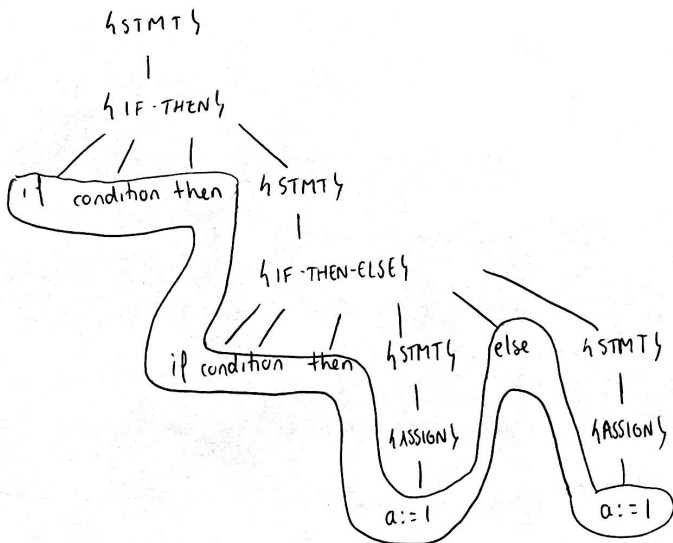 <STMT>
<IF-THEN>
if condition then <STMT>
<IF-THEN-ELSE>
if condition then <STMT> else <STMT>
<ASSIGN> <ASSIGN>
a:=1 a:=1